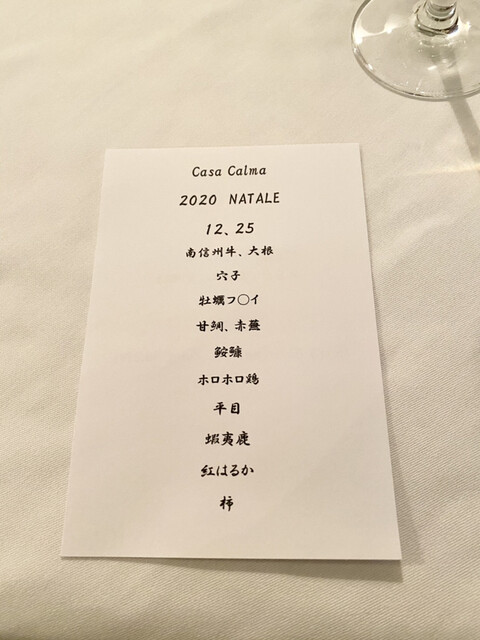 Casa Calma
2020 NATALE
12、25
南信州牛、大根
穴子
牡蠣フ〇イ
甘鯛、赤蕪
鮟鱇
ホロホロ鶏
平目
蝦夷鹿
紅はるか
柿